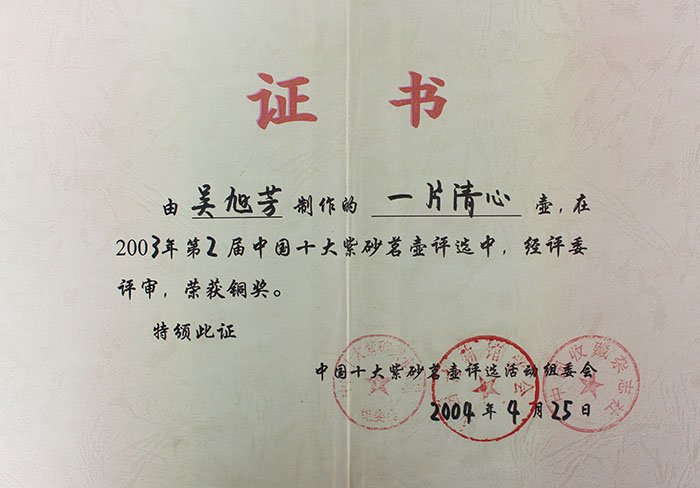 证 书
由 吴旭芳 制作的 一片清心 壶，在
2003年第2届中国十大紫砂茗壶评选中，经评委
评审，荣获铜奖。
特颁此证
中国十大紫砂茗壶评选活动组委会
2004年4月25日
收藏杂志社